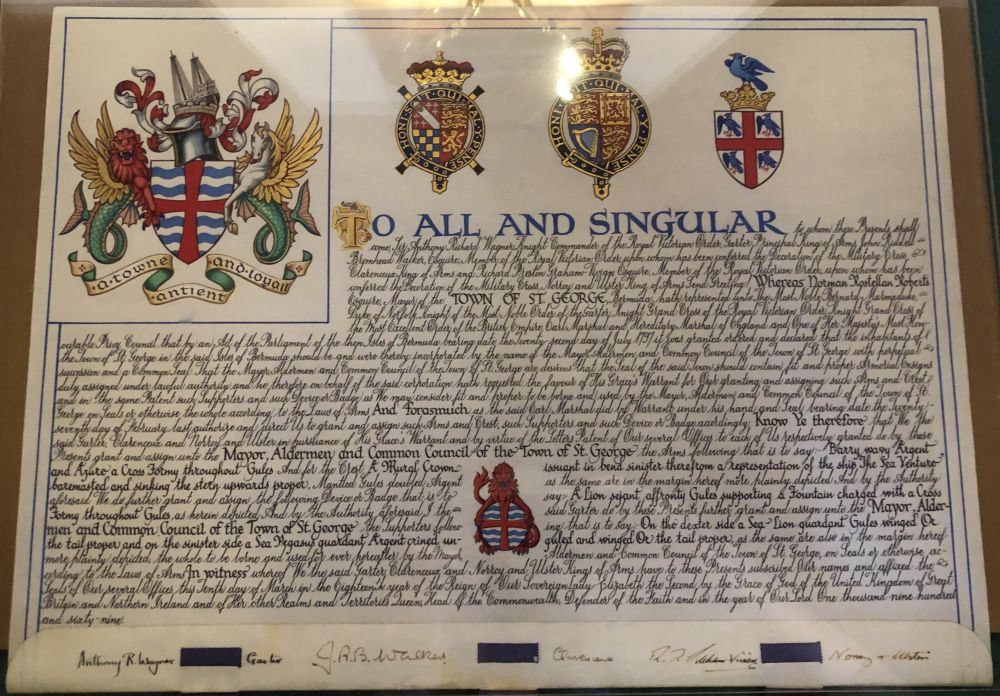 HONI SOIT QUI MAL Y PENSE
HONI SOIT QUI MAL Y PENSE
a·towne
antient
and·loyall
TO ALL AND SINGULAR to whom these Presents shall
come, Sir Anthony Richard Wagner, Knight Commander of the Royal Victorian Order, Garter Principal King of Arms, John Riddell
Bromhead Walker, Esquire, Member of the Royal Victorian Order, upon whom has been conferred the Decoration of the Military Cross,
Clarenceux King of Arms and Richard Preston Graham-Vivian, Esquire, Member of the Royal Victorian Order, upon whom has been
conferred the Decoration of the Military Cross, Norroy and Ulster King of Arms Send Greeting! Whereas Norman Roberts
Esquire, Mayor of the TOWN OF ST. GEORGE, Bermuda, hath represented unto the Most Noble Bernard Marmaduke,
Duke of Norfolk, Knight of the Most Noble Order of the Garter, Knight Grand Cross of the Royal Victorian Order, Knight Grand Cross of
the Most Excellent Order of the British Empire, Earl Marshal and Hereditary Marshal of England and One of Her Majesty's Most Hon-
ourable Privy Council that by an Act of the Parliament of the then Isles of Bermuda bearing date the Twenty-second day of July 1797 it was granted ordered and declared that the inhabitants of
the Town of St. George in the said Isles of Bermuda should be and were thereby incorporated by the name of the Mayor, Aldermen and Common Council of the Town of St. George with perpetual
succession and a Common Seal That the Mayor Aldermen and Common Council of the Town of St. George are desirous that the Seal of the said Town should contain fit and proper Armorial Ensigns
duly assigned under lawful authority and he therefore on behalf of the said corporation hath requested the favour of His Grace's Warrant for Our granting and assigning such Arms and Crest
and in the same Patent such Supporters and such Device or Badge as We may consider fit and proper to be borne and used by the Mayor, Aldermen and Common Council of the Town of St.
George on Seals or otherwise the whole according to the Laws of Arms And forasmuch as the said Earl Marshal did by Warrant under his hand and Seal bearing date the Twenty-
seventh day of February last authorize and direct Us to grant and assign such Arms and Crest, such Supporters and such Device or Badge accordingly Know Ye therefore that We the
said Garter, Clarenceux and Norroy and Ulster in pursuance of His Grace's Warrant and by virtue of the Letters Patent of Our several Offices to each of Us respectively granted do by these
Presents grant and assign unto the Mayor, Aldermen and Common Council of the Town of St. George the Arms following that is to say:- Barry wavy Argent
and Azure a Cross Formy throughout Gules And for the Crest A Mural Crown issuant in bend sinister therefrom a representation of the ship The Sea Venture
baremasted and sinking the stern upwards proper Mantled Gules doubled Argent as the same are in the margin hereof more plainly depicted And by the Authority
aforesaid We do further grant and assign the following Device or Badge that is to say:- A Lion sejant affronty Gules supporting a Fountain charged with a Cross
Formy throughout Gules as herein depicted And by the Authority aforesaid I the said Garter do by these Presents further grant and assign unto the Mayor, Alder-
men and Common Council of the Town of St. George the Supporters follow- ing that is to say:- On the dexter side a Sea Lion guardant Gules winged Or
the tail proper and on the sinister side a Sea Pegasus guardant Argent crined un- guled and winged Or the tail proper as the same are also in the margin hereof
more plainly depicted, the whole to be borne and used for ever hereafter by the Mayor, Aldermen and Common Council of the Town of St. George, on Seals or otherwise, ac-
cording to the Laws of Arms In witness whereof We the said Garter, Clarenceux and Norroy and Ulster Kings of Arms have to these Presents subscribed Our names and affixed the
Seals of Our several Offices this Tenth day of March in the Eighteenth year of the Reign of Our Sovereign Lady Elizabeth the Second by the Grace of God of the United Kingdom of Great
Britain and Northern Ireland and of Her other Realms and Territories Queen, Head of the Commonwealth, Defender of the Faith and in the year of Our Lord One thousand nine hundred
and sixty-nine.
Anthony R. Wagner Garter J.R.B. Walker Clarenceux Norroy & Ulster